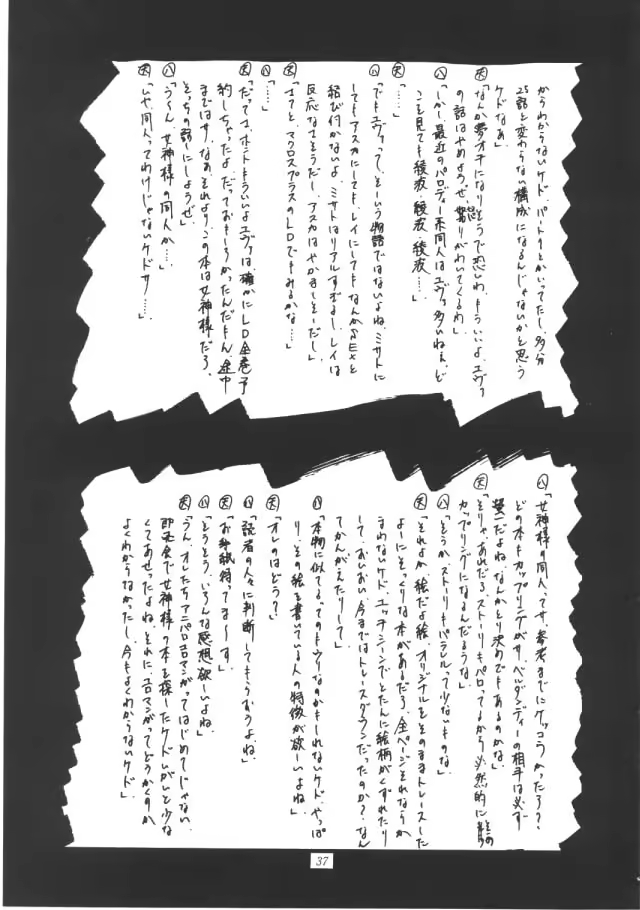 からわからないケド、パート1とかいってたし、多分
25話と変わらない構成になるんじゃないかと思う
ケドなぁ」
天「なんか夢オチになりそうで恐いわ、もういいよ、エヴァ
の話はやめようぜ、怒りがわいてくるわ」
八「しかし最近のパロディー系同人はエヴァ多いねぇ、ど
こを見ても綾波、綾波、綾波…」
天「……」
八「でもエヴァって、そーいう物語ではないよね、ミサトに
してもアスカにしても、レイにしても、なんかSEXと
結び付かないよ、ミサトはリアルすぎるし、レイは
反応なさそうだし、アスカはやかましそーだし」
天「さてと、マクロスプラスのLDでもみるかな…」
八「……」
天「だってさ、ホントもういいよエヴァは、確かにLD全巻予
約しちゃったよ、だっておもしろかったんだもん、途中
まではサ、なぁ、それよりこの本は女神様だろ、
そっちの話にしようぜ」
八「う〜ん、女神様の同人か…」
天「いや、同人ってわけじゃないケドサ……」
八「女神様の同人ってサ、参考までにケッコうかったろ?
どの本もカップリングがサ、ベルダンディーの相手は必ず
螢一だよね、なんかとり決めでもあるのかな」
天「そりゃあれだろ、ストーリーもパロってるから必然的に
カップリングになるんだろうな」
八「そうか、ストーリーもパラレルって少ないものな」
天「それより絵だよ絵、オリジナルをそのままトレースした
よーにそっくりな本があるだろ、全ページそれならか
まわないケド、エッチシーンでとたんに絵柄がくずれたり
して、おいおい、今まではトレースダウンだったのか?なん
てかんがえたりして」
八「本物に似てるってのもウリなのかもしれないケド、やっぱ
り、その絵を書いている人の特徴が欲しいよね」
天「オレのはどう?」
八「読者の人々に判断してもらおうよね」
天「お手紙待ってま〜す」
八「そうそう、いろんな感想欲しいよね」
天「うん、オレたちアニパロエロマンガってはじめてじゃない、
即売会で女神様の本を探したケドいがいと少な
くてあせったよね、それにエロマンガってどうかくのか
よくわからなかったし、今もよくわからないケド」
37